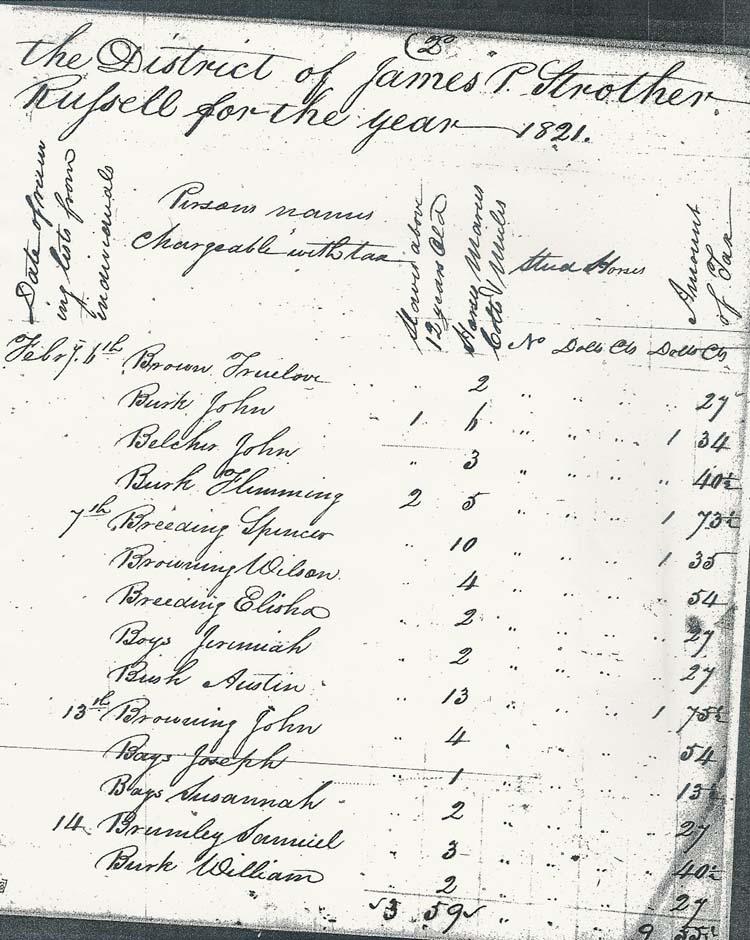 (2
the District of James P. Strother
Russell for the year 1821.
Date of receiv
ing lists from
individuals
Persons names
Chargeable with tax
Slaves above
12 years Old
Horses Mares
Colts & Mules
Stud Horses
Amount
of Tax
No Dolls Cts Dolls Cts
Febry. 6th Brown Truelove " 2 " " " " 27
Burk John 1 6 " " " 1 34
Belcher John " 3 " " " " 40½
Burk Flemming 2 5 " " " 1 73½
7th Breeding Spencer " 10 " " " 1 35
Browning Wilson " 4 " " " " 54
Breeding Elisha " 2 " " " " 27
Boys Jerimiah " 2 " " " " 27
Bush Austin " 13 " " " 1 75½
13th Browning John " 4 " " " " 54
Bays Joseph " 1 " " " " 13½
Bays Susannah " 2 " " " " 27
14 Brumley Samuel " 3 " " " " 40½
Burk William " 2 " " " " 27
3 59 " " " 9 55½